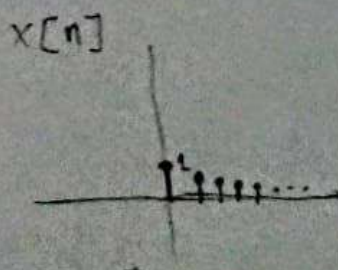 x[n]
1
...